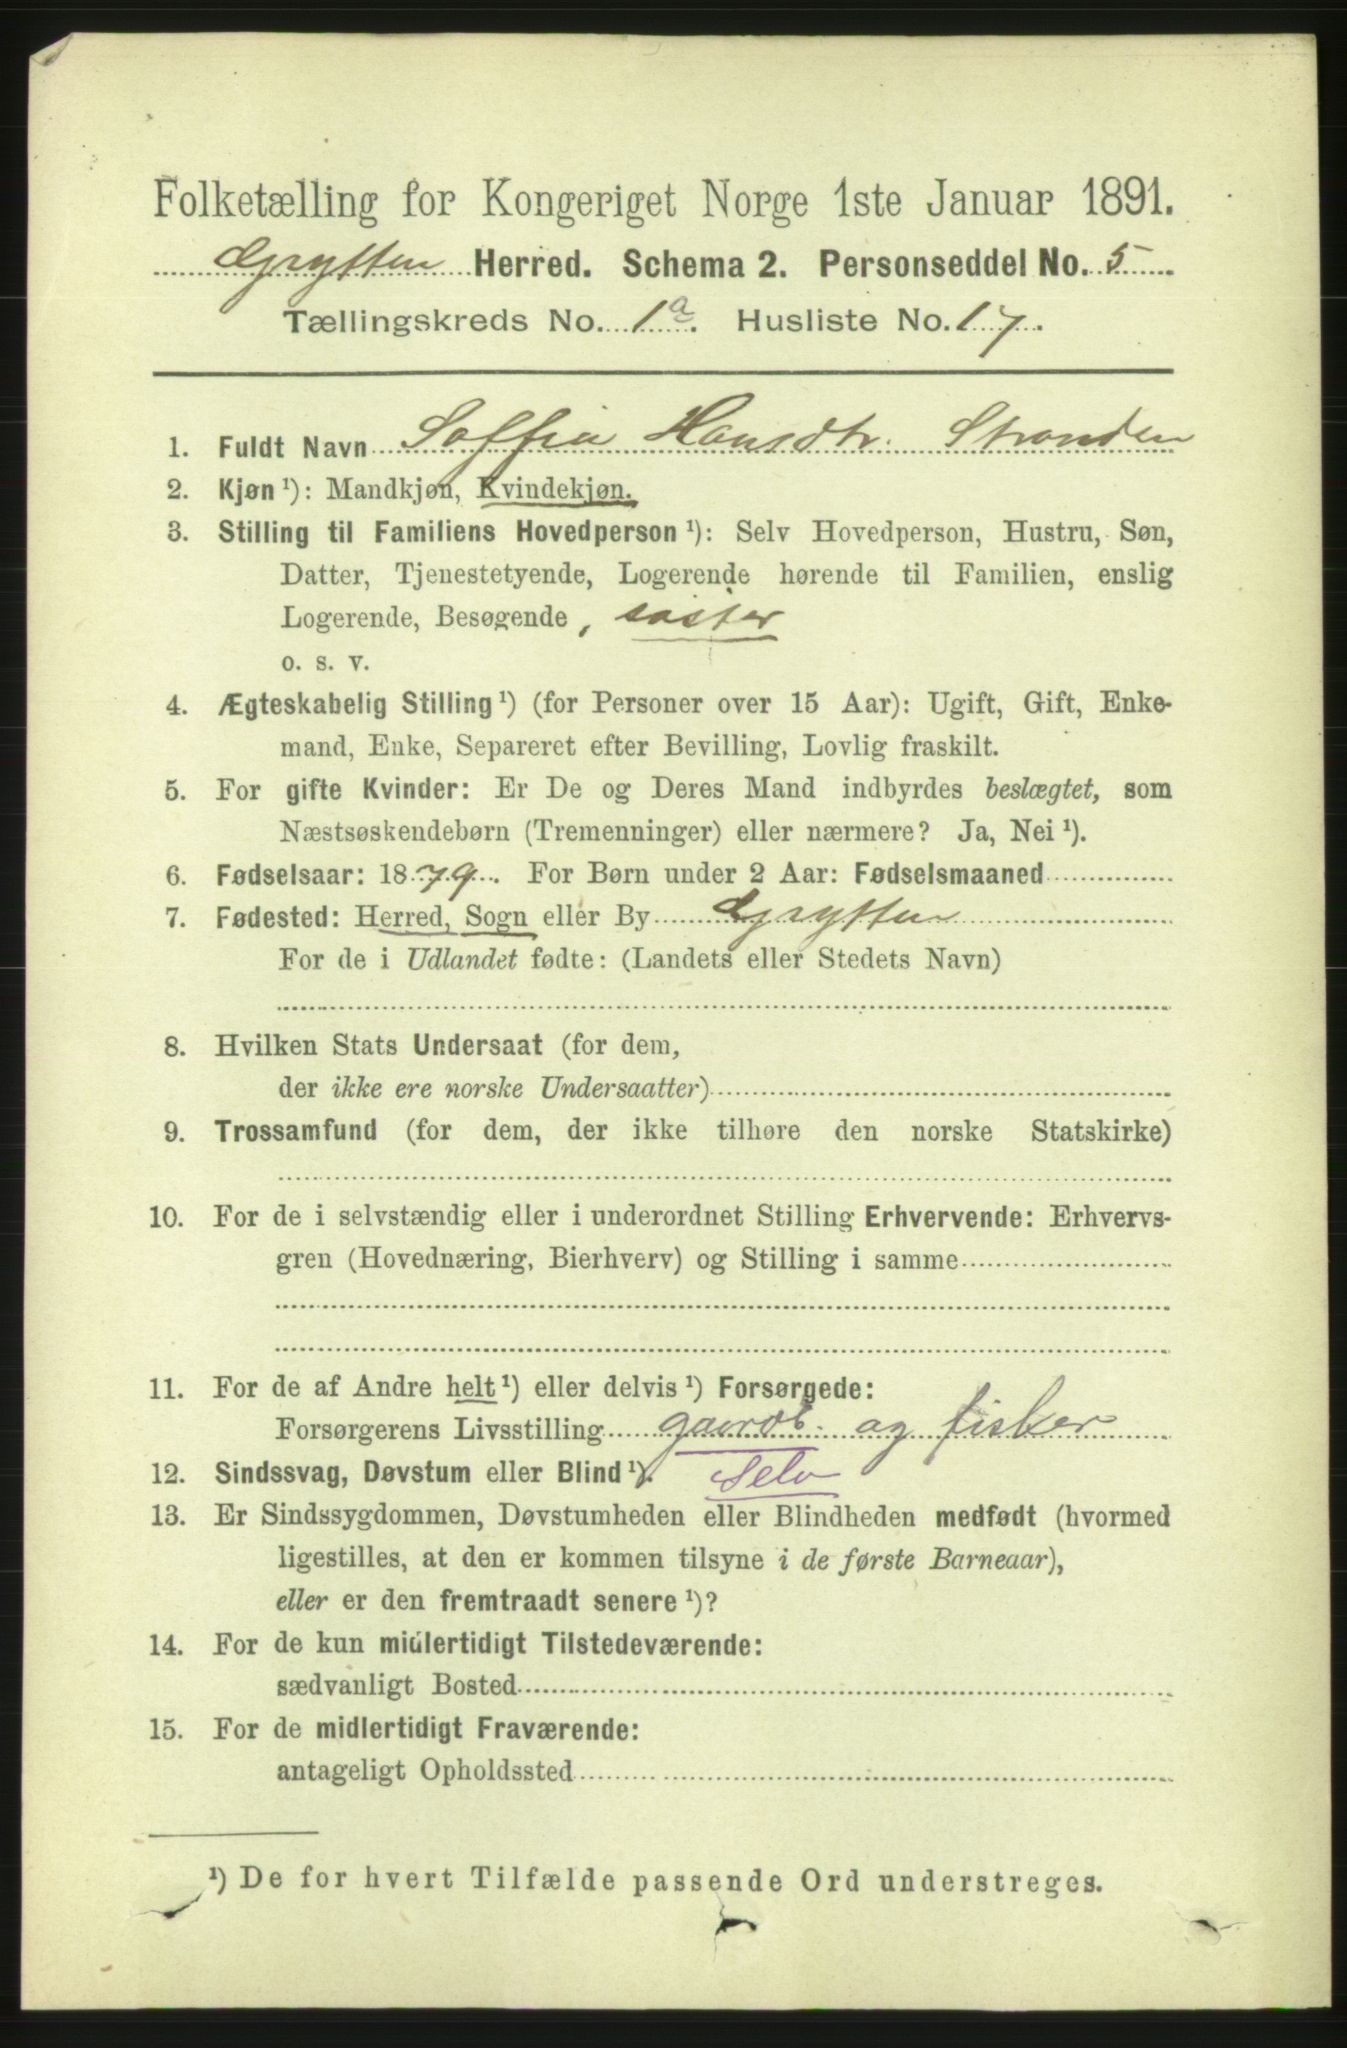 Folketælling for Kongeriget Norge 1ste Januar 1891.
Grytten Herred. Schema 2. Personseddel No. 5
Tællingskreds No. 1a. Husliste No. 17.
1. Fuldt Navn Soffia Hansdtr. Stranden
2. Kjøn ¹): Mandkjøn, Kvindekjøn.
3. Stilling til Familiens Hovedperson ¹): Selv Hovedperson, Hustru, Søn,
Datter, Tjenestetyende, Logerende hørende til Familien, enslig
Logerende, Besøgende, søster
o. s. v.
4. Ægteskabelig Stilling ¹) (for Personer over 15 Aar): Ugift, Gift, Enke-
mand, Enke, Separeret efter Bevilling, Lovlig fraskilt.
5. For gifte Kvinder: Er De og Deres Mand indbyrdes beslægtet, som
Næstsøskendebørn (Tremenninger) eller nærmere? Ja, Nei ¹).
6. Fødselsaar: 1879. For Børn under 2 Aar: Fødselsmaaned
7. Fødested: Herred, Sogn eller By Grytten
For de i Udlandet fødte: (Landets eller Stedets Navn)
8. Hvilken Stats Undersaat (for dem,
der ikke ere norske Undersaatter)
9. Trossamfund (for dem, der ikke tilhøre den norske Statskirke)
10. For de i selvstændig eller i underordnet Stilling Erhvervende: Erhvervs-
gren (Hovednæring, Bierhverv) og Stilling i samme
11. For de af Andre helt ¹) eller delvis ¹) Forsørgede:
Forsørgerens Livsstilling gaardb. og fisker
12. Sindssvag, Døvstum eller Blind ¹). Selv
13. Er Sindssygdommen, Døvstumheden eller Blindheden medfødt (hvormed
ligestilles, at den er kommen tilsyne i de første Barneaar),
eller er den fremtraadt senere ¹)?
14. For de kun midlertidigt Tilstedeværende:
sædvanligt Bosted
15. For de midlertidigt Fraværende:
antageligt Opholdssted
¹) De for hvert Tilfælde passende Ord understreges.